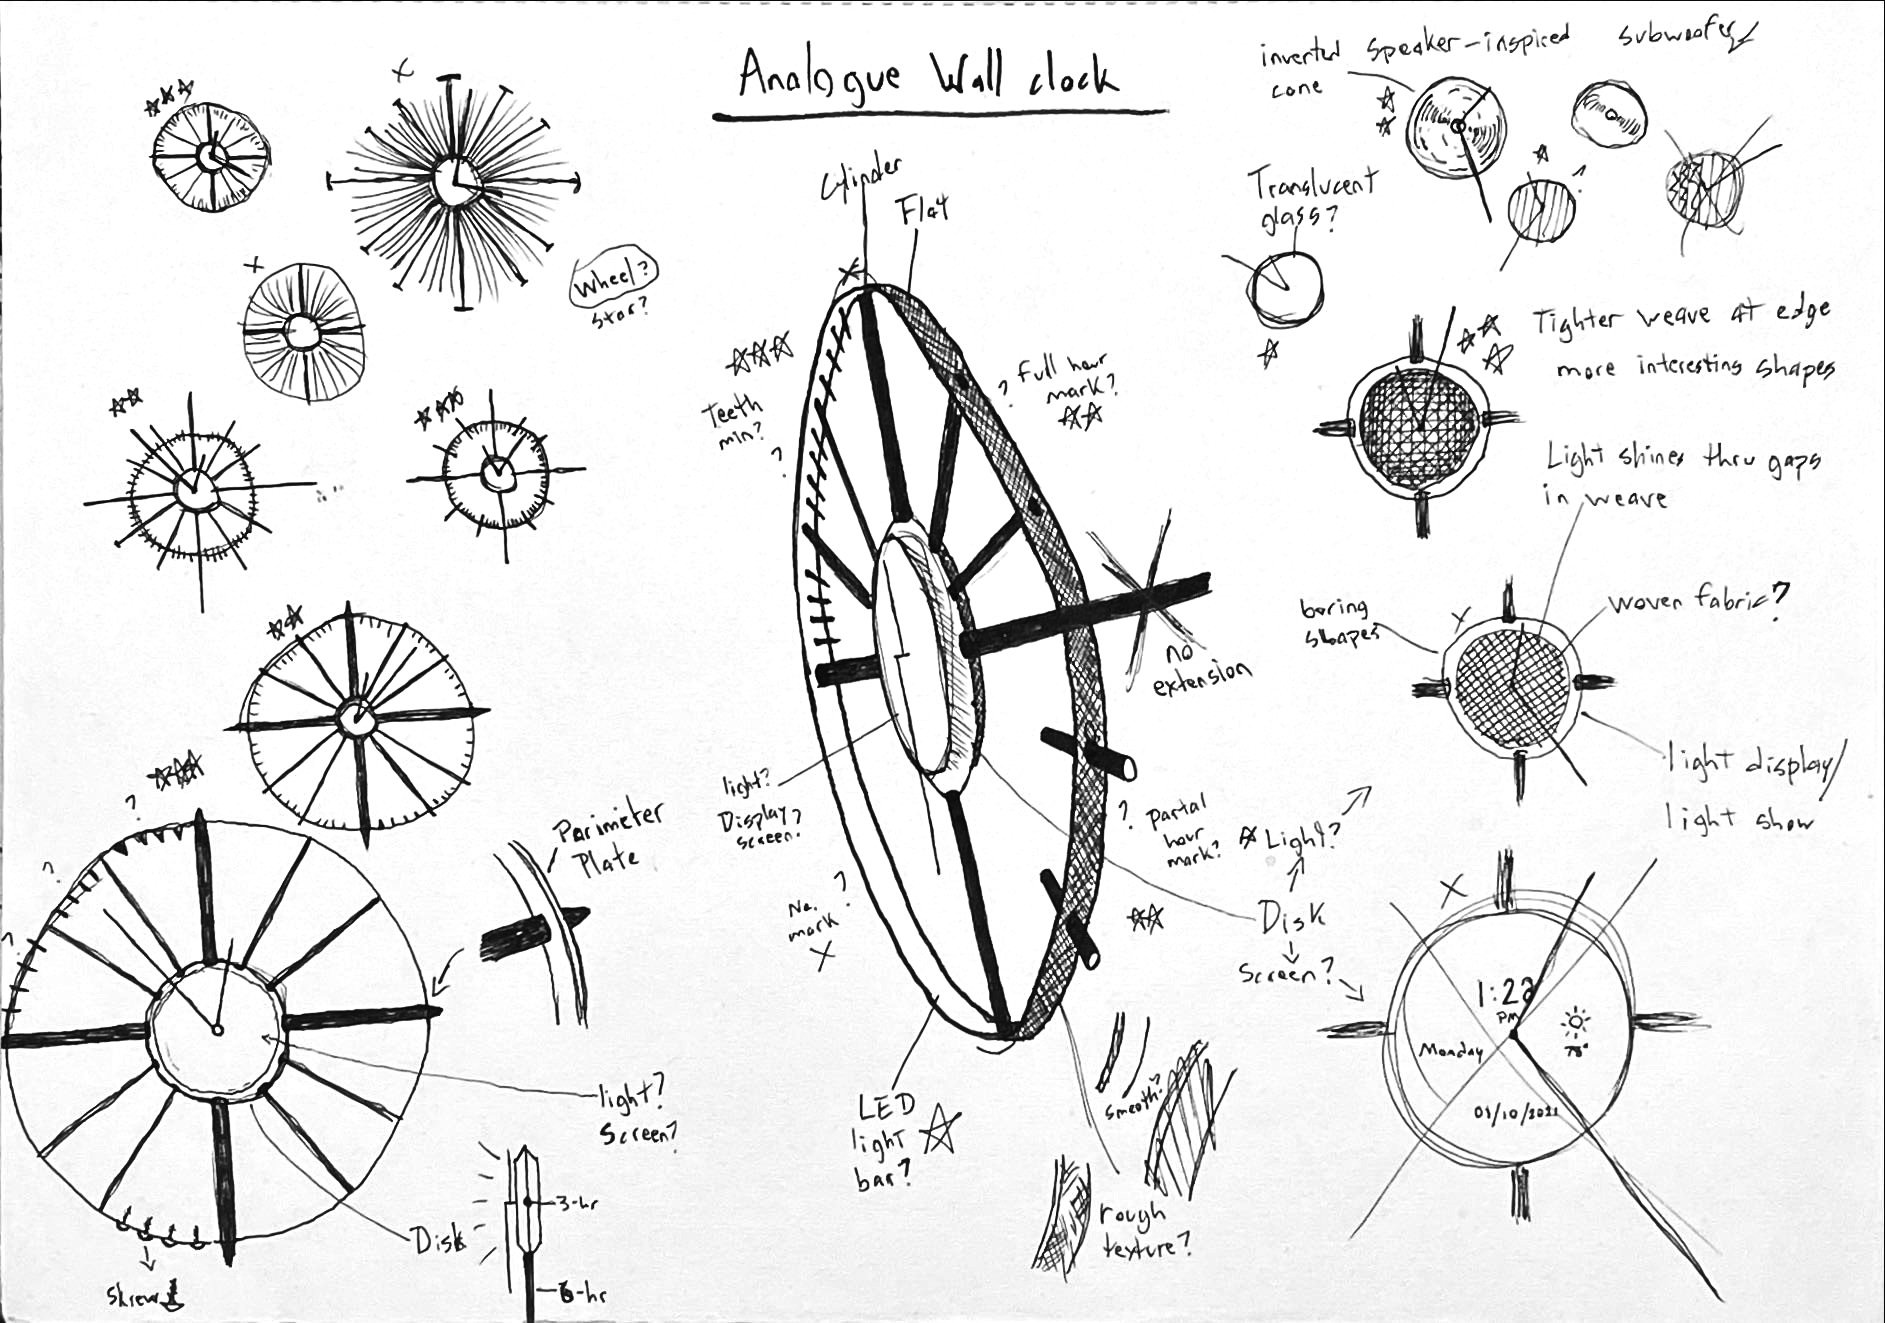 Analogue Wall clock
Wheel?
star?
Cylinder
Flat
Teeth
min?
?
? Full hour
mark?
no
extension
light?
Display?
screen?
? Partial
hour
mark?
No.
mark ?
LED
light
bar?
smooth?
rough
texture?
Parimeter
Plate
?
?
?
light?
Screen?
Disk
Skrew
3-hr
6-hr
inverted
cone
speaker-inspired subwoofer
Translucent
glass?
?
Tighter weave at edge
more interesting shapes
Light shines thru gaps
in weave
boring
shapes
woven fabric?
light display/
light show
Light?
Disk
Screen?
1:22
PM
Monday
78°